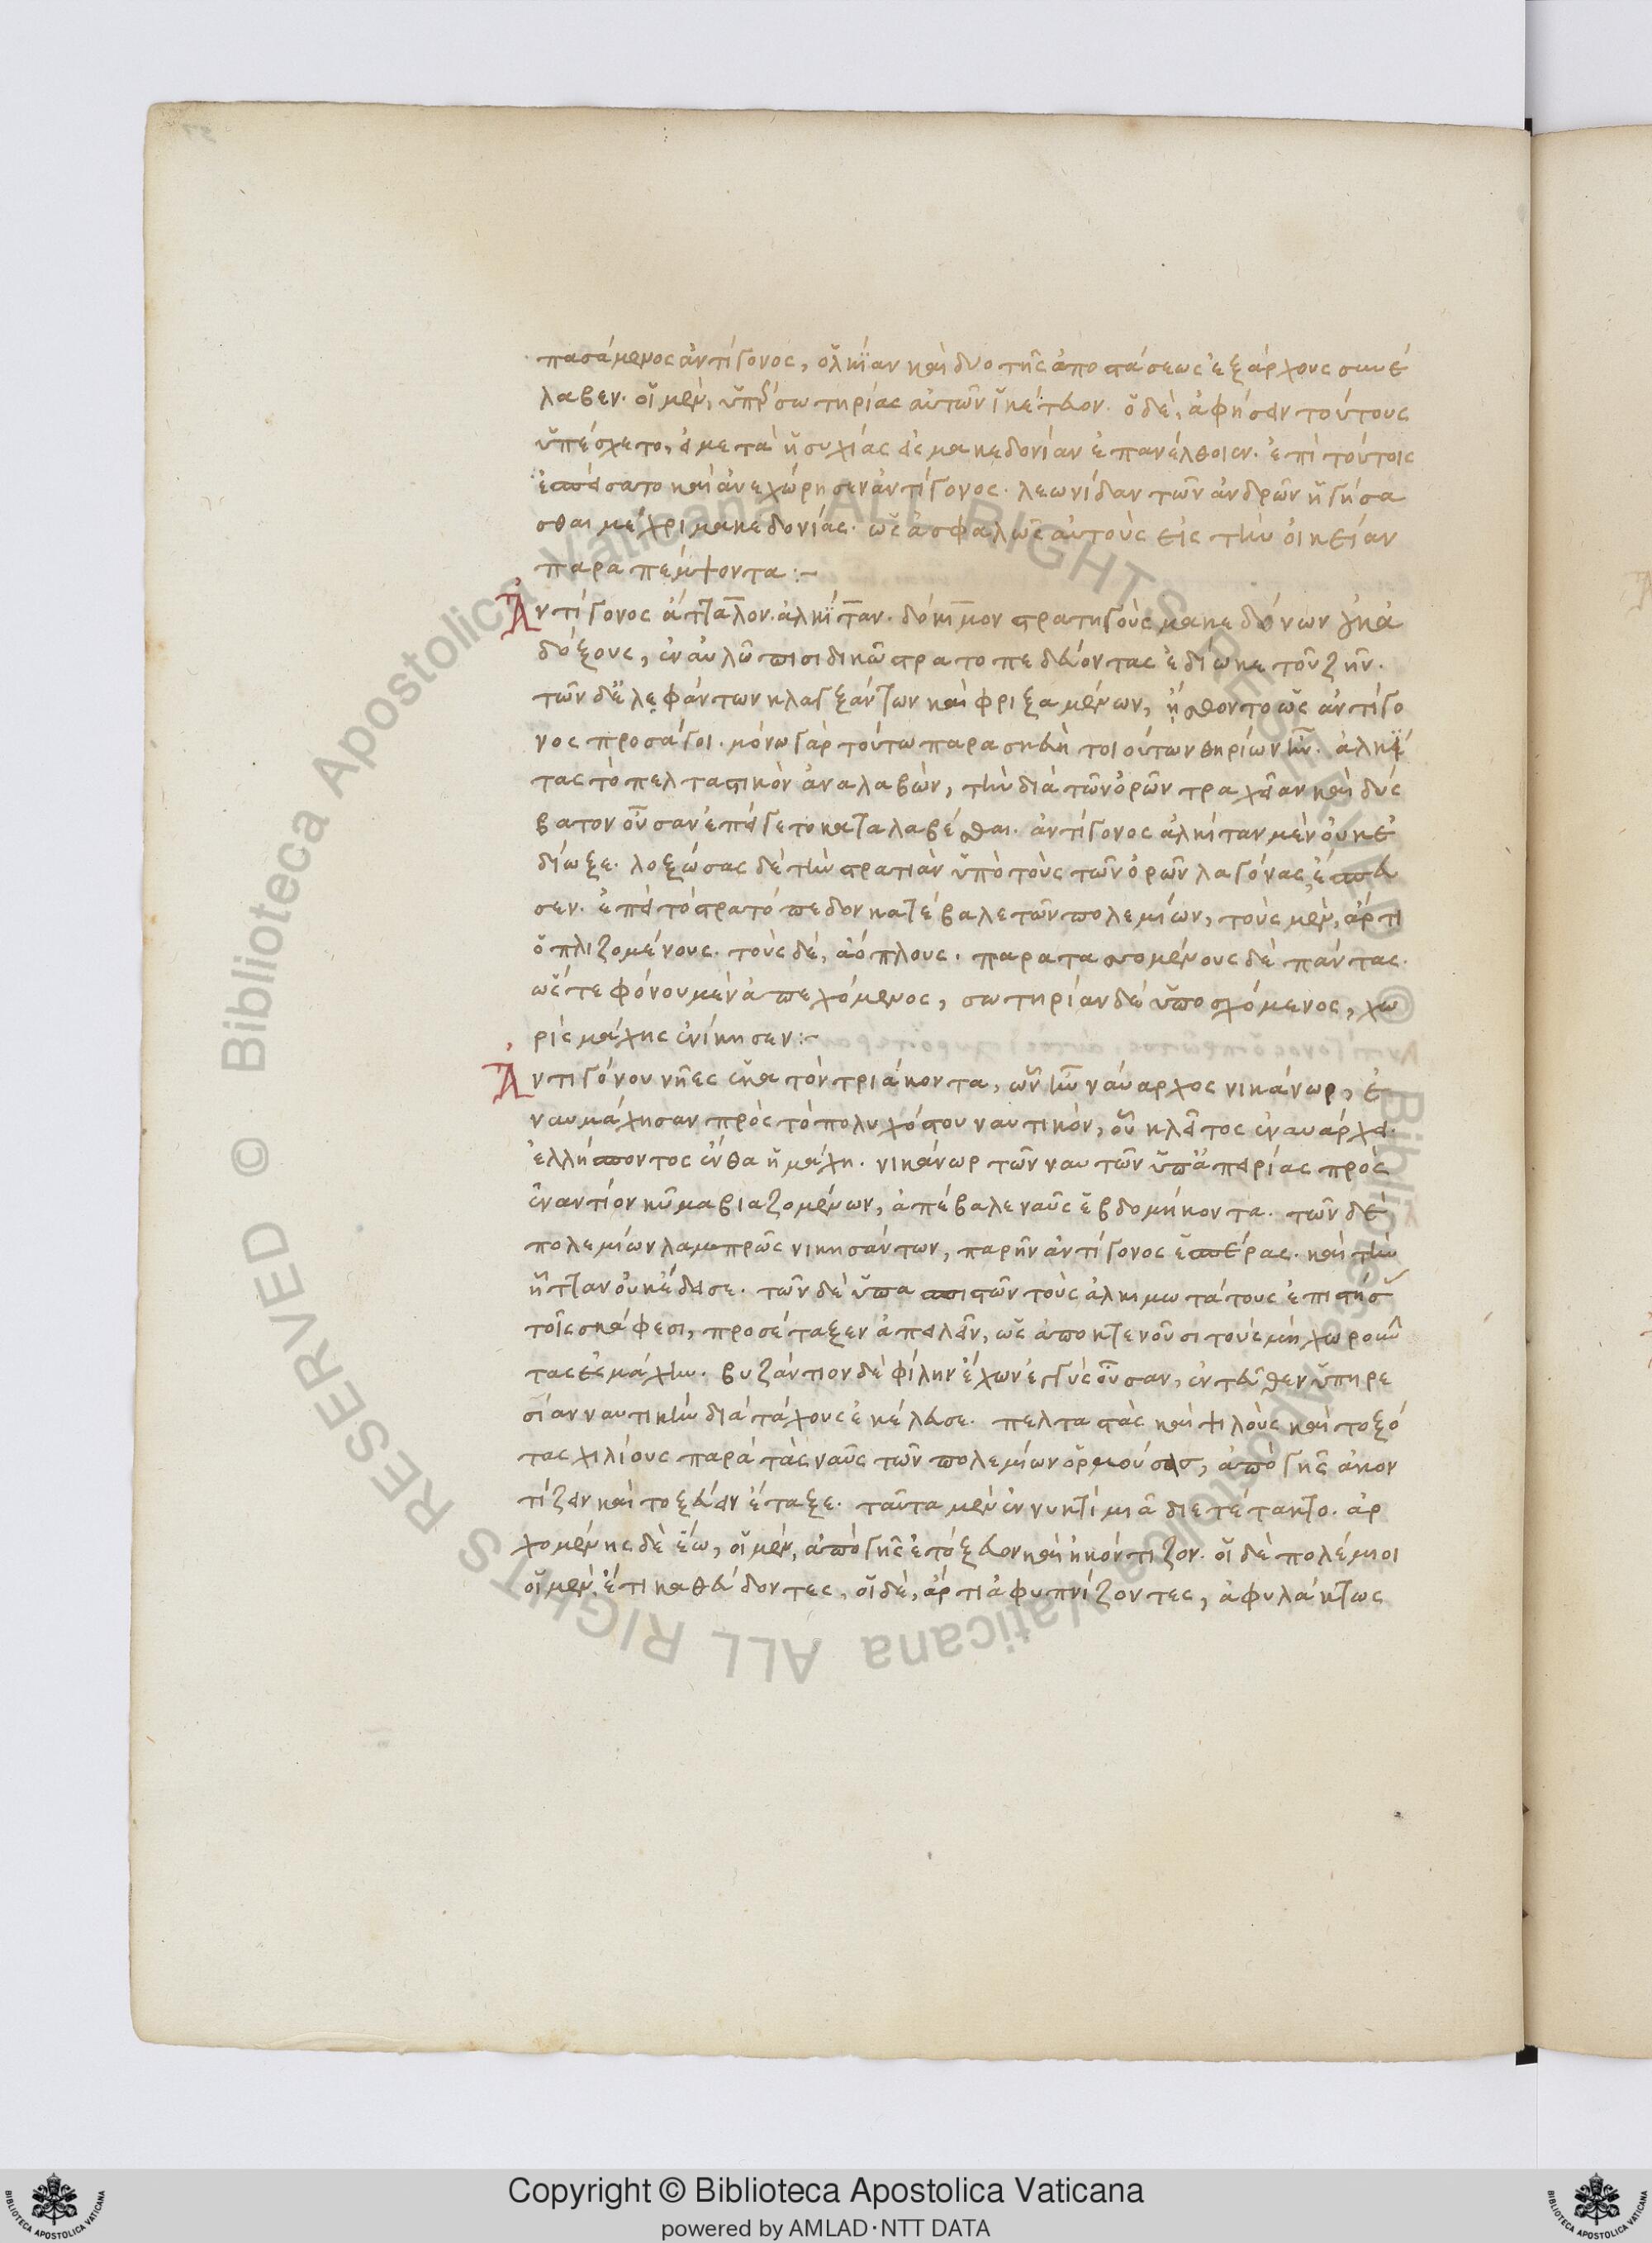 πασάμενος ἀντίγονος, ὁλκίαν καὶ δυο τῆς ἀποστάσεως ἐξάρχους συνέ
λαβεν. οἱ μὲν, ὑπὲρ σωτηρίας αὐτῶν ἱκέτευον. ὁ δὲ, ἀφήσειν τούτους
ὑπέσχετο, εἰ μετὰ ἡσυχίας εἰς μακεδονίαν ἐπανέλθοιεν. ἐπὶ τούτοις
ἐσπείσατο καὶ ἀνεχώρησεν ἀντίγονος. λεωνίδαν τῶν ἀνδρῶν ἡγήσα
σθαι μέχρι μακεδονίας. ὡς ἀσφαλῶς αὐτοὺς εἰς τὴν οἰκείαν
παραπέμψοντα :~
Ἀντίγονος ἄτταλον. ἀλκίταν. δόκιμον στρατηγοὺς μακεδόνων
δόξους, ἐν αὐλῶ πισιδικῶ στρατοπεδεύοντας ἐδίωκε τοῦ ζῆν.
τῶν δὲ ἐλεφάντων κλαγξάντων καὶ φριξαμένων, ἤσθοντο ὡς ἀντίγο
νος προσάγοι. μόνω γὰρ τούτω παρασκευὴ τοιούτων θηρίων ἦν. ἀλκί
τας τὸ πελταστικὸν ἀναλαβὼν, τὴν διὰ τῶν ὀρῶν τραχεῖαν καὶ δύς
βατον οὖσαν ἐπείγετο καταλαβέσθαι. ἀντίγονος ἀλκίταν μὲν οὐκ ἐ
δίωξε. λοξώσας δὲ τὴν στρατιὰν ὑπὸ τοὺς τῶν ὀρῶν λαγόνας, ἔσπευ
σεν. ἐπεὶ τὸ στρατόπεδον κατέβαλε τῶν πολεμίων, τοὺς μὲν, ἄρτι
ὁπλιζομένους. τοὺς δὲ, ἀόπλους. παρατασσομένους δὲ πάντας.
ὥστε φόνου μὲν ἀπεχόμενος, σωτηρίαν δὲ ὑποσχόμενος, χω
ρὶς μάχης ἐνίκησεν :~
Ἀντιγόνου νῆες ἑκατὸν τριάκοντα, ὧν ἦν ναύαρχος νικάνωρ, ἐ
ναυμάχησαν πρὸς τὸ πολυσχόστου ναυτικὸν, οὗ κλεῖτος ἐναυάρχει.
ἑλλήσποντος ἔνθα ἡ μάχη. νικάνωρ τῶν ναυτῶν ὑπ' ἀπειρίας πρὸς
ἐναντίον κῦμα βιαζομένων, ἀπέβαλε ναῦς ἑβδομήκοντα. τῶν δὲ
πολεμίων λαμπρῶς νικησάντων, παρῆν ἀντίγονος ἑσπέρας. καὶ τὴν
ἧτταν οὐκ ἔδεισε. τῶν δὲ ὑπασπιστῶν τοὺς ἀλκιμωτάτους ἐπιστήσας
τοῖς σκάφεσι, προσέταξεν ἀπειλεῖν, ὡς ἀποκτενοῦσι τοὺς μὴ χωροῦν
τας εἰς μάχην. βυζάντιον δὲ φίλην ἔχων ἐγγὺς οὖσαν, ἐντεῦθεν ὑπηρε
σίαν ναυτικὴν διὰ τάχους ἐκέλευσε. πελταστὰς καὶ ψιλοὺς καὶ τοξό
τας χιλίους παρὰ τὰς ναῦς τῶν πολεμίων ὁρμούσας, ἀπὸ γῆς ἀκον
τίζειν καὶ τοξεύειν ἔταξε. ταῦτα μὲν ἐν νυκτὶ μιᾶ διετέτακτο. ἀρ
χομένης δὲ ἕω, οἱ μὲν, ἀπὸ γῆς ἐτόξευον καὶ ἠκόντιζον. οἱ δὲ πολέμιοι
οἱ μὲν ἔτι καθεύδοντες, οἱ δὲ, ἄρτι ἀφυπνίζοντες, ἀφυλάκτως
Copyright © Biblioteca Apostolica Vaticana
powered by AMLAD·NTT DATA